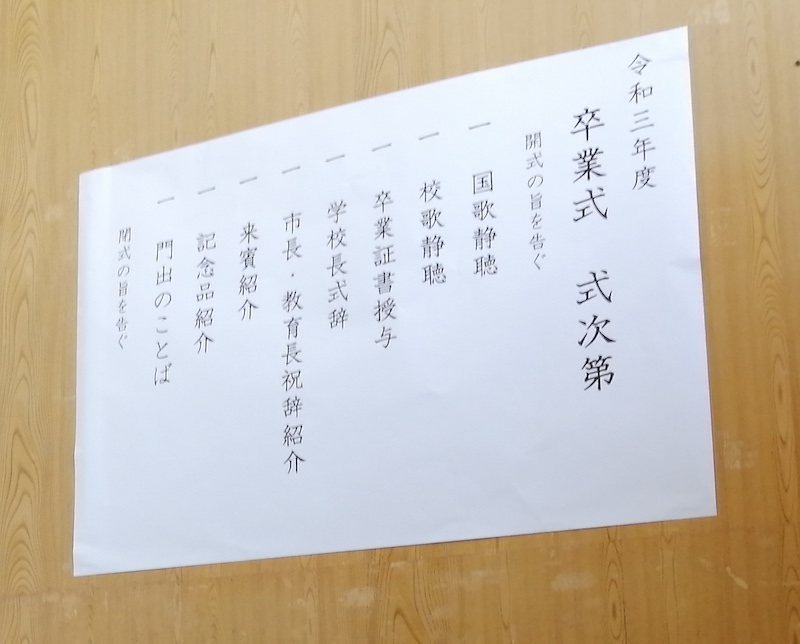 令和三年度
卒業式　式次第
開式の旨を告ぐ
一　国歌静聴
一　校歌静聴
一　卒業証書授与
一　学校長式辞
一　市長・教育長祝辞紹介
一　来賓紹介
一　記念品紹介
一　門出のことば
閉式の旨を告ぐ